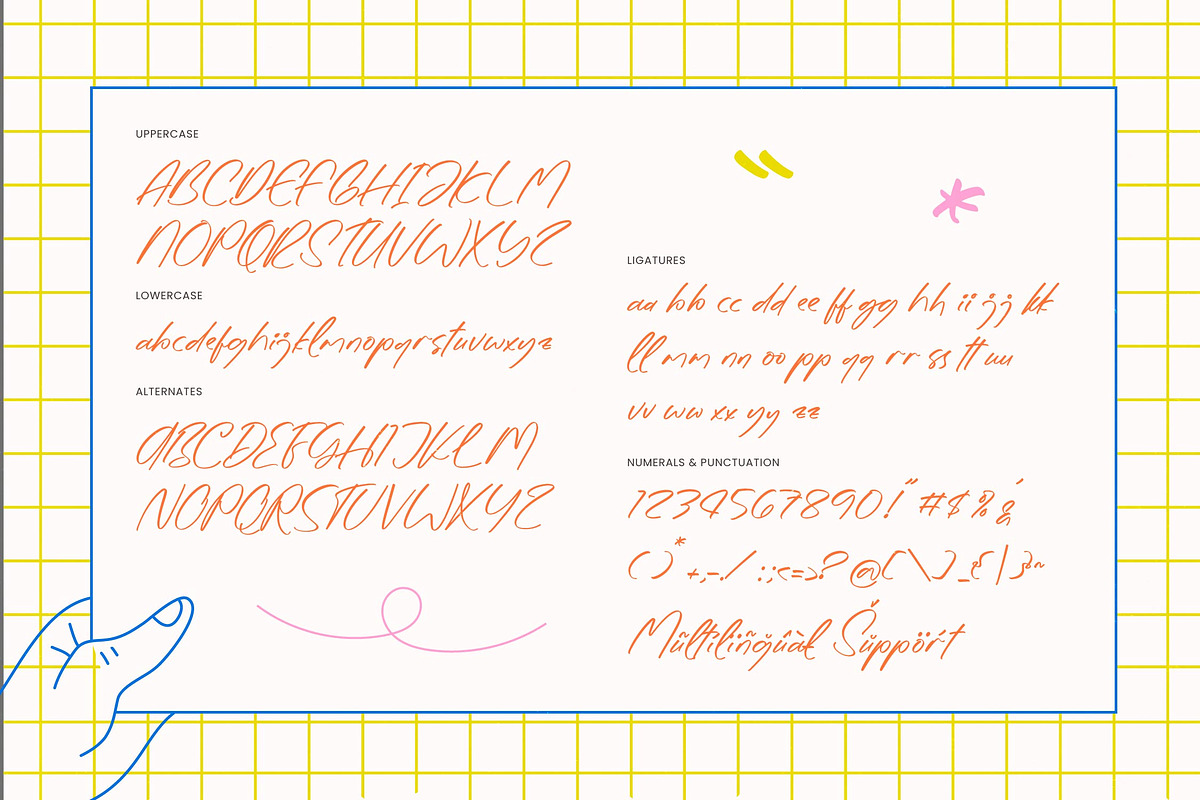 UPPERCASE
ABCDEFGHIJKLM
NOPQRSTUVWXYZ
LOWERCASE
abcdefghijklmnopqrstuvwxyz
ALTERNATES
ABCDEFGHIJKLM
NOPQRSTUVWXYZ
LIGATURES
aa bb cc dd ee ff gg hh ii jj kk
ll mm nn oo pp qq rr ss tt uu
vv ww xx yy zz
NUMERALS & PUNCTUATION
1234567890!" #$%&'
()*+,-./:;<=>?@[\]_{|}~
Mültílíñğûàl Šüppört